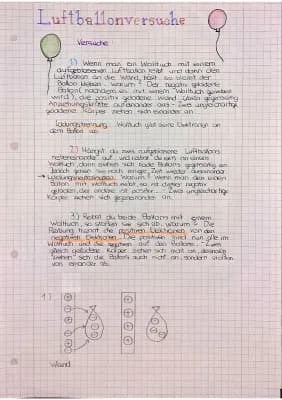 Luftballonversuche
Versuche
1.) Wenn man ein Wolltuch mit einem
aufgeblasenen Luftballon reibt und dann den
Luftballon an die Wand hält, so bleibt der
Ballon kleben. Warum? Der negativ geladene
Ballon (nachdem es mit einem Wolltuch gerieben
wird), die positiv geladene Wand üben gegenseitig
Anziehungskräfte aufeinander aus - Zwei ungleichartig
geladene Körper ziehen sich einander an.
Ladungstrennung: Wolltuch gibt seine Elektronen an
den Ballon ab.
2.) Hängst du zwei aufgeblasene Luftballons
nebeneinander auf und reibst du den mit einem
Wolltuch, dann ziehen sich beide Ballons gegenseitig an.
Jedoch gehen sie nach einiger Zeit wieder auseinander.
Warum? Wenn man den einen
Ballon mit Wolltuch reibt, so ist dieser negativ
geladen, der andere ist positiv. Zwei ungleichartige
Körper ziehen sich gegeneinander an.
3.) Reibst du beide Ballons mit einem
Wolltuch, so stoßen sie sich ab. Warum? Die
Reibung trennt die positiven Elektronen von den
negativen Elektronen. Die positiven sind nun alle im
Wolltuch und die negativen auf den Ballons. Zwei
gleich geladene Körper ziehen sich nicht an, deshalb
"ziehen" sich die Ballons auch nicht an, sondern stoßen
von einander ab.
1.)
Wand